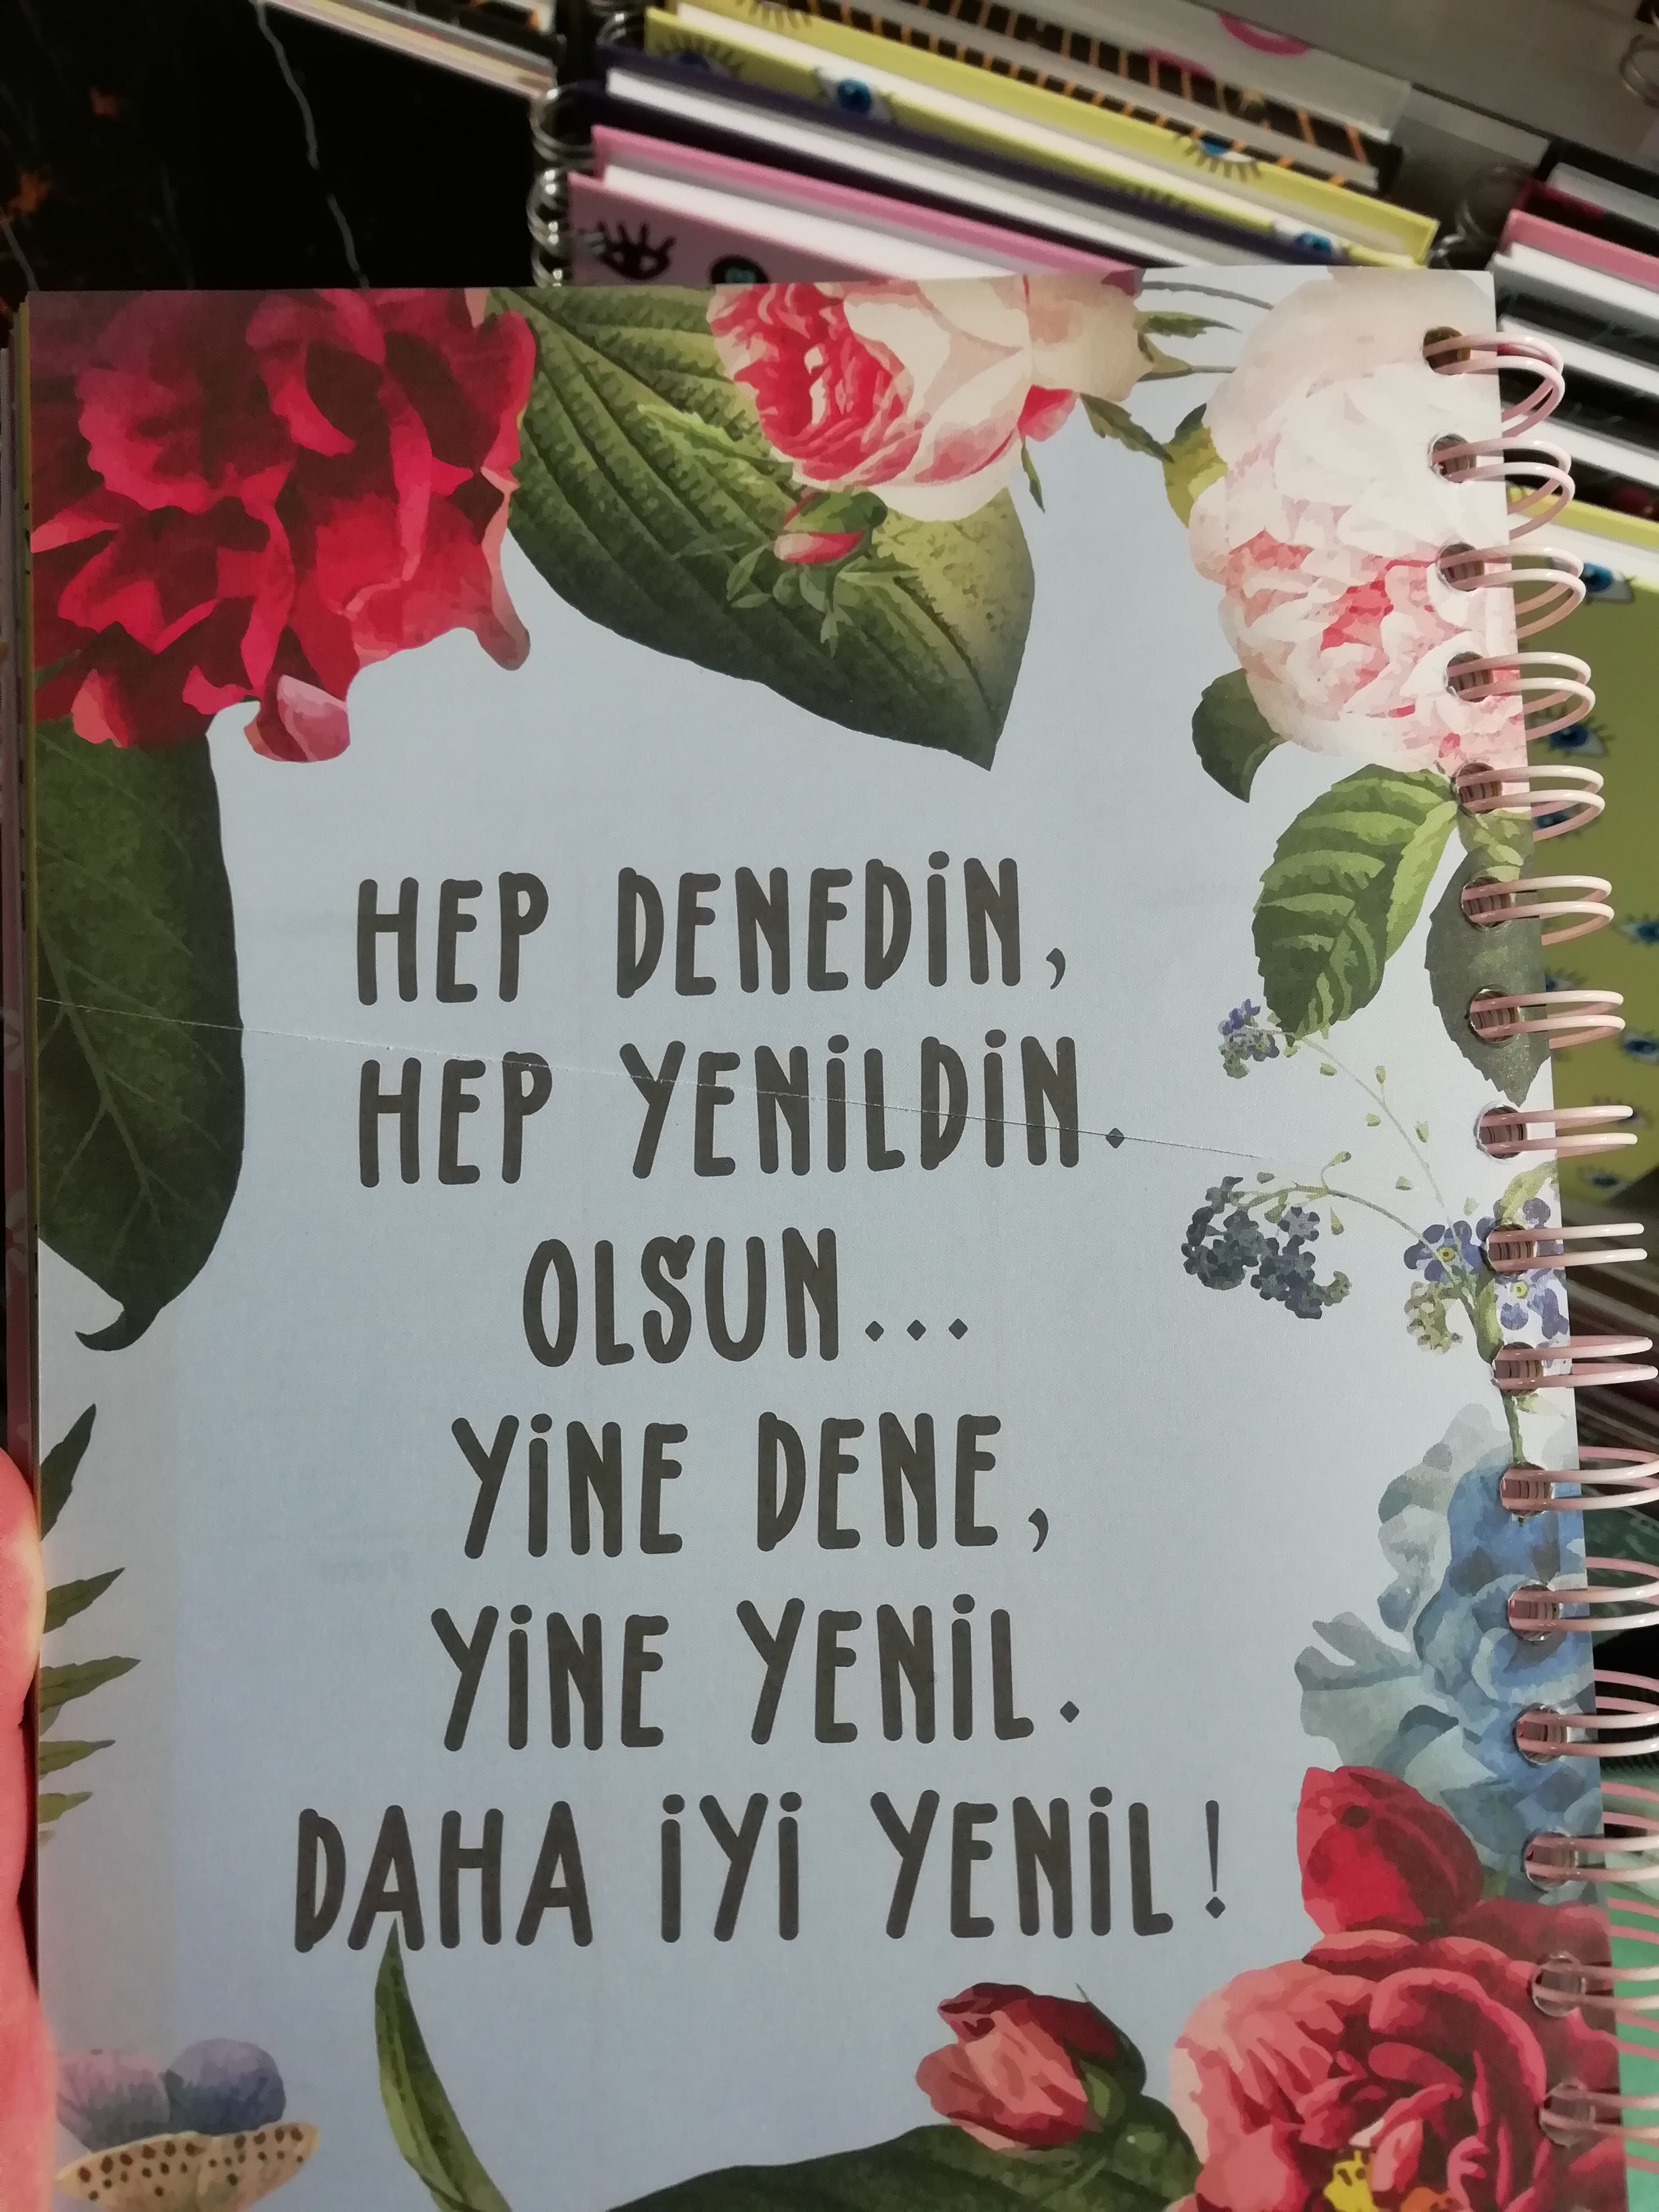 HEP DENEDİN,
HEP YENİLDİN.
OLSUN...
YİNE DENE,
YİNE YENİL.
DAHA İYİ YENİL!